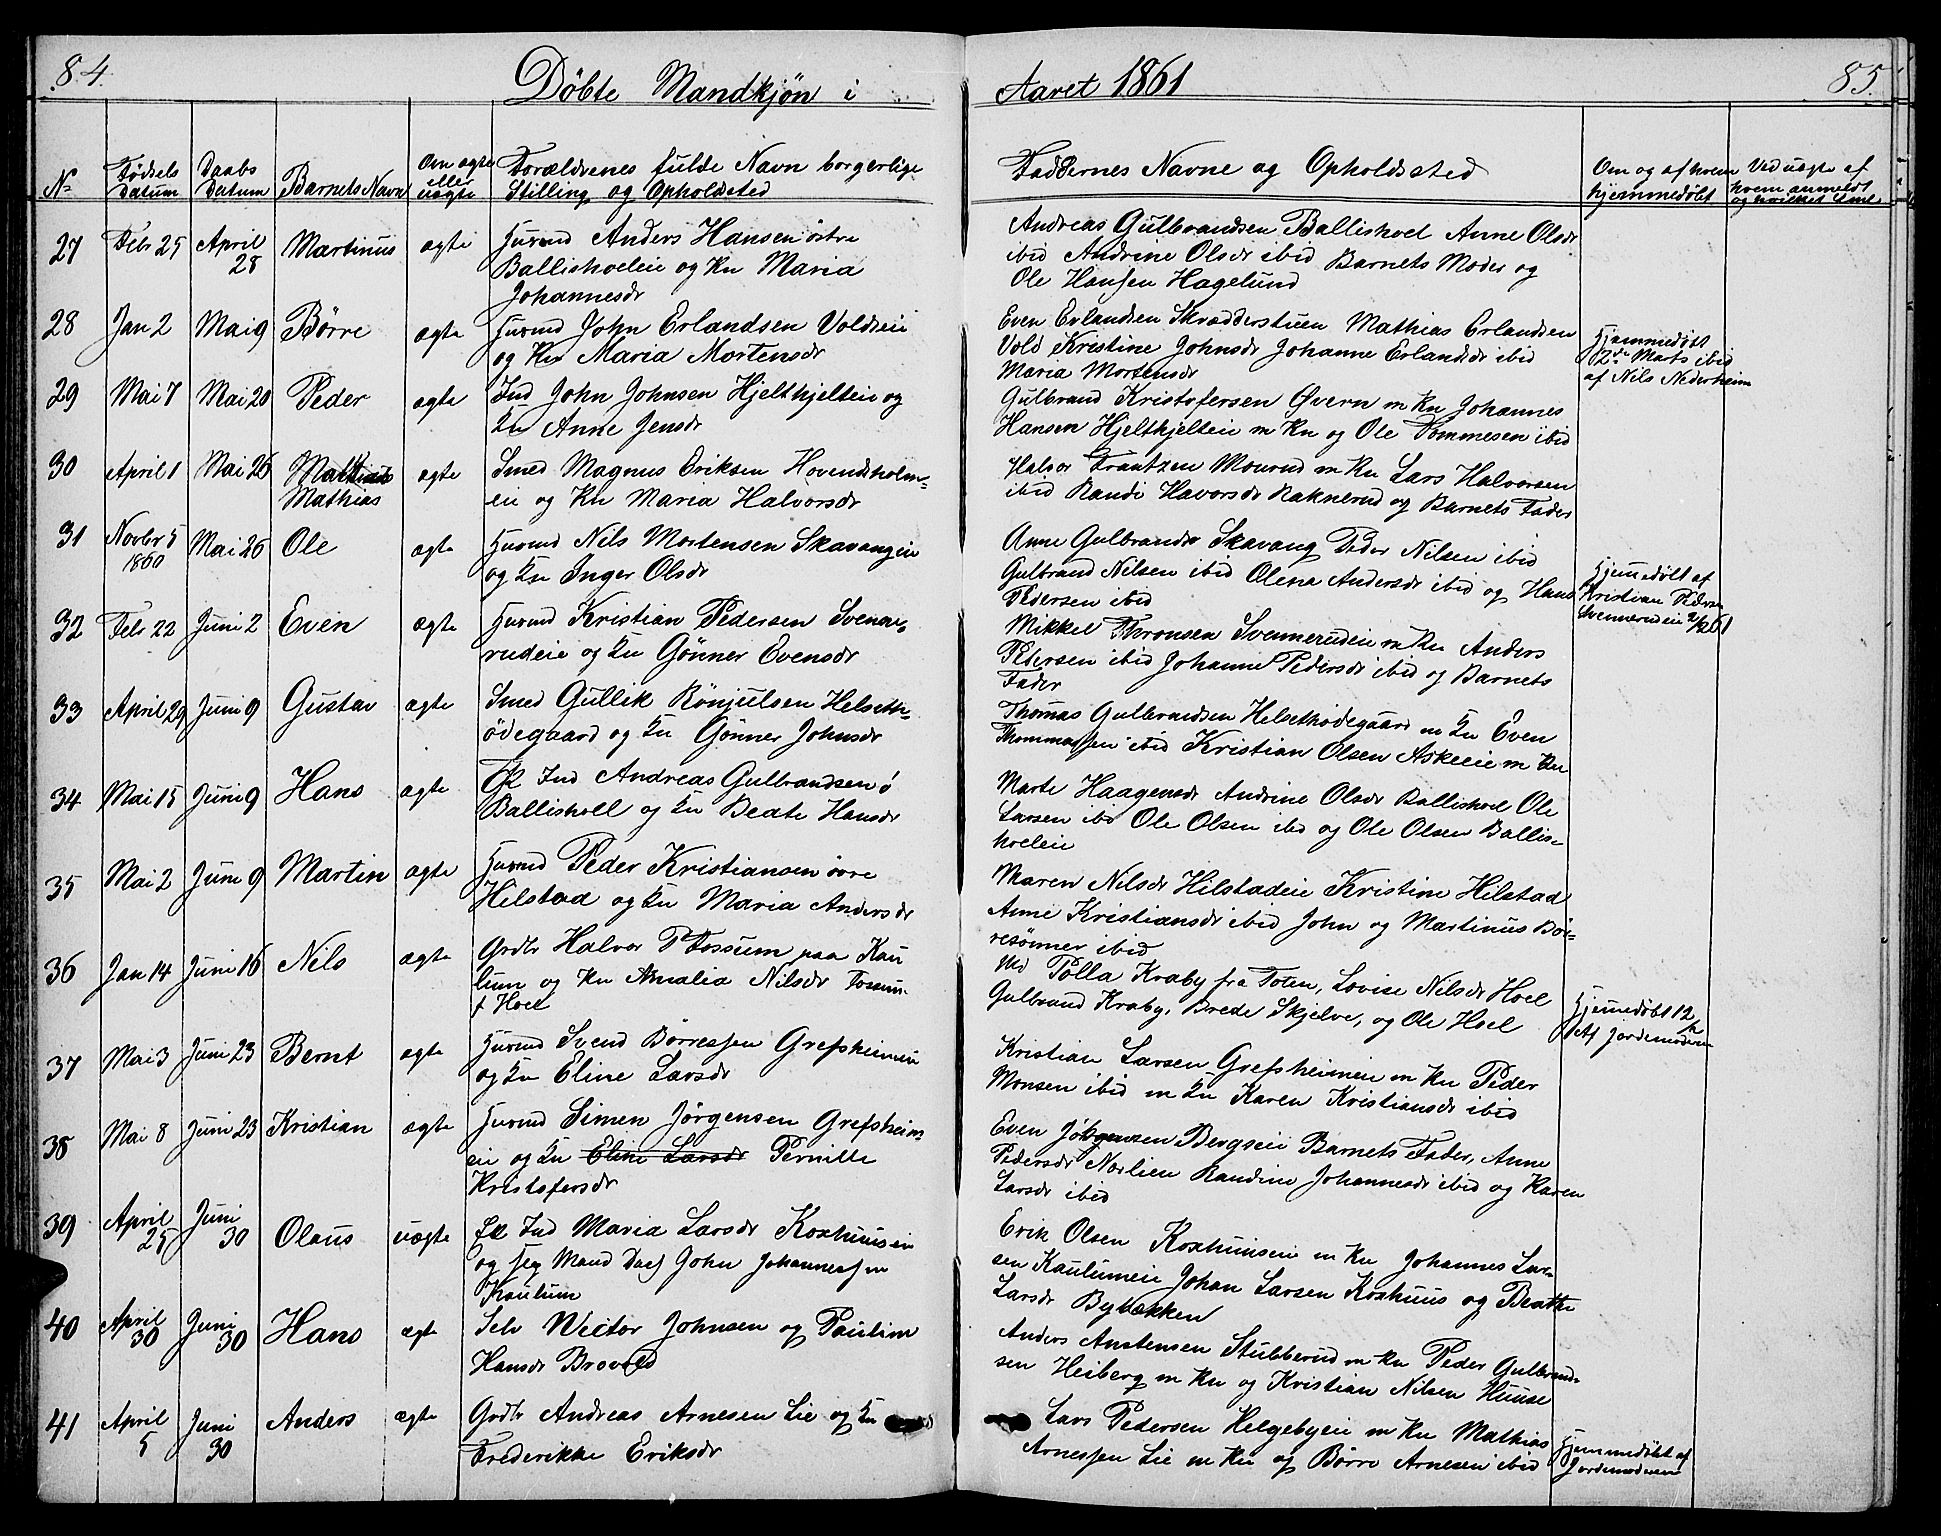 84.
Döbte Mandkjön i
No
Födsels Datum
Daabs Datum
Barnets Navn
Om ægte eller uægte
Forældrenes fulde Navn borgerlige
Stilling og Opholdssted
27 Febr 25 April 28 Martinus ægte Husmd Anders Hansen östre
Ballishoeleie og Kn Maria
Johannesdr
28 Jan 2 Mai 9 Börre ægte Husmd John Erlandsen Voldseie
og Kn Maria Mortensdr
29 Mai 7 Mai 20 Peder ægte Ind John Johnsen Hjelthjelteie og
Kn Anne Jensdr
30 April 1 Mai 26 Mathias ægte Smed Magnus Eriksen Hovendsholm-
eie og Kn Maria Halvorsdr
31 Novbr 5 1860 Mai 26 Ole ægte Husmd Nils Mortensen Skavangeie
og Kn Inger Olsdr
32 Febr 22 Juni 2 Even ægte Husmd Kristian Pedersen Svenne-
rudeie og Kn Gönner Evensdr
33 April 29 Juni 9 Gustav ægte Smed Gullik Rönjulsen Helseth-
ödegaard og Kn Gönner Johnsdr
34 Mai 15 Juni 9 Hans ægte Ind Andreas Gulbrandsen ö
Ballishoell og Kn Beate Hansdr
35 Mai 2 Juni 9 Martin ægte Husmd Peder Kristiansen övre
Hilstad og Kn Maria Andersdr
36 Jan 14 Juni 16 Nils ægte Grdbr Halvor P Fossum paa Kau
lum og Kn Amalia Nilsdr Fossum
f Hoel
37 Mai 3 Juni 23 Bernt ægte Husmd Svend Börressen Grefsheimeie
og Kn Eline Larsdr
38 Mai 8 Juni 23 Kristian ægte Husmd Simen Jörgensen Grefsheim-
eie og Kn Eline Larsdr Pernille
Kristofersdr
39 April 25 Juni 30 Olaus uægte Ind Maria Larsdr Koxhuuseie
og Ung Mand Dag John Johannessen
Kaulum
40 April 30 Juni 30 Hans ægte Selv Wictor Johnsen og Pauline
Hansdr Brovold
41 April 5 Juni 30 Anders ægte Grdbr Andreas Arnesen Lie og Kn
Frederikke Eriksdr
Aaret 1861
85.
Faddernes Navne og Opholdssted
Om og af hvem hjemmedöbt
Ved uægte af hvem anmeldt
Andreas Gulbrandsen Ballishoel Anne Olsdr
ibid Andrine Olsdr ibid Barnets Moder og
Ole Hansen Hagelund
Even Erlandsen Skrædderstuen Mathias Erlandsen
Vold Kristine Johnsdr Johanne Erlandsdr ibid
Maria Mortensdr
Hjemmedöbt
2de Marts ibid
af Nils Nederheim
Gulbrand Kristofersen Övern m Kn Johannes
Hansen Hjelthjelteie m Kn og Ole Tommesen ibid
Halvor Frantzen Mourud m Kn Lars Halvorsen
ibid Randi Havorsdr Raknerud og Barnets Fader
Anne Gulbrandsdr Skavang Peder Nilsen ibid
Gulbrand Nilsen ibid Olena Andersdr ibid og Hans
Pedersen ibid
Hjemmedöbt af
Kristian Pedersen
Svennerudeie
Mikkel Thronsen Svennerudeie m Kn Anders
Pedersen ibid Johanne Pedersdr ibid og Barnets
Fader
Thomas Gulbrandsen Helsethödegaard m Kn Even
Thommassen ibid Kristian Olsen Askeeie m Kn
Marte Haagensdr Andrine Olsdr Ballishoel Ole
Larsen ibd Ole Olsen ibid og Ole Olsen Ballis-
hoeleie
Maren Nilsdr Hilstadeie Kristine Hilstad
Anne Kristiansdr ibid John og Martinus Bör-
resönner ibid
Md Polla Kraby fra Toten, Lovise Nilsdr Hoel
Gulbrand Kraby, Brede Skjelve, og Ole Hoel
Hjemmedöbt
Af Jordemoderen
Kristian Larsen Grefsheimeie m Kn Peder
Monsen ibid m Kn Karen Kristiansdr ibid
Even Jörgensen Bergseie Barnets Fader, Anne
Pedersdr Norlien Randine Johannesdr ibid og Karen
Larsdr ibid
Erik Olsen Koxhuuseie m Kn Johannes Lar-
sen Kaulumeie Johan Larsen Koxhuus og Beathe
Larsdr Bybækken
Anders Anstensen Stubberud m Kn Peder Gulbrand-
sen Heiberg m Kn og Kristian Nilsen Huuse
Lars Pedersen Helgebyeie m Kn Mathias
Arnessen Lie m Kn og Börre Arnesen ibid
Hjemmedöbt af
Jordemoderen